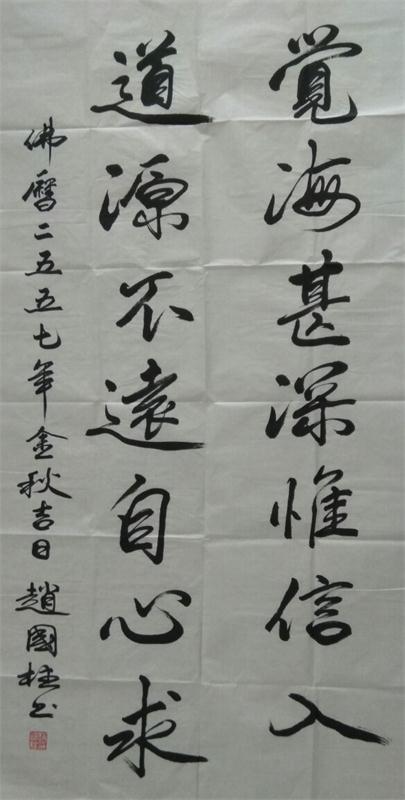 覺海甚深惟信入
道源不遠自心求
佛曆二五五七年金秋吉日 趙國柱书